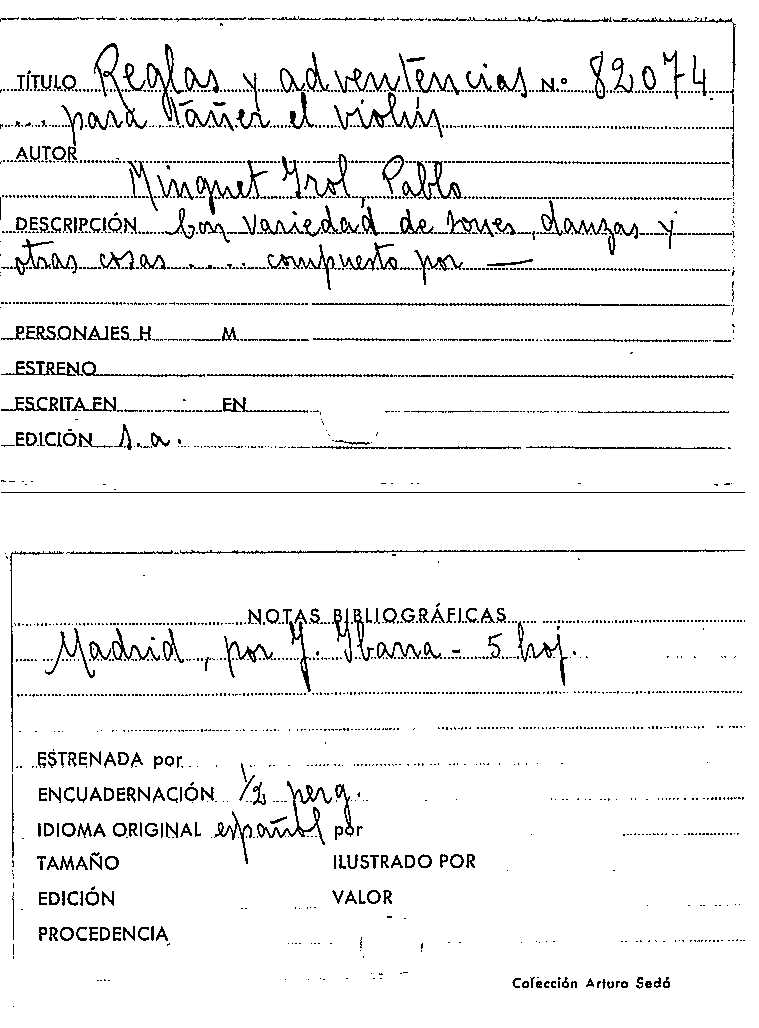 TÍTULO Reglas y adventencias Nº 82074
... para tañer el violín
AUTOR
Minguet Yrol, Pablo
DESCRIPCIÓN Con variedad de sones, danzas y
otras cosas .... compuesto por —
PERSONAJES H M
ESTRENO
ESCRITA EN EN
EDICIÓN s.a.
NOTAS BIBLIOGRÁFICAS
Madrid, por J. Ibarra - 5 hoj.
ESTRENADA por
ENCUADERNACIÓN 1/2 perg.
IDIOMA ORIGINAL español por
TAMAÑO ILUSTRADO POR
EDICIÓN VALOR
PROCEDENCIA
Colección Arturo Sedó